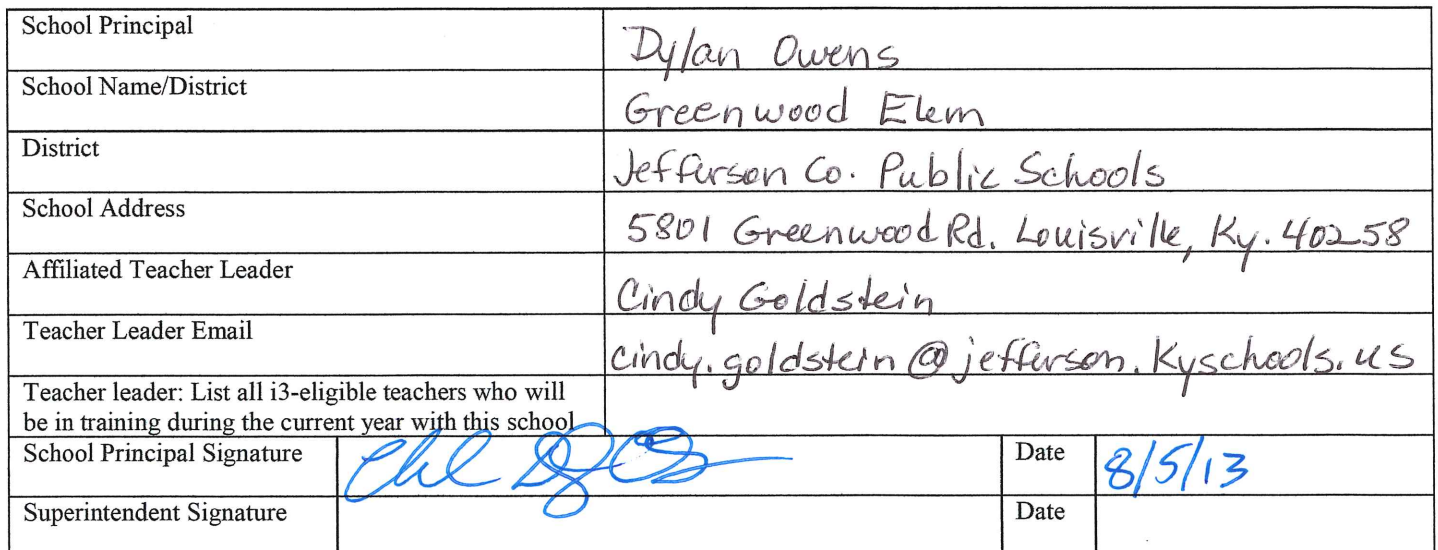 School Principal Dylan Owens
School Name/District Greenwood Elem
District Jefferson Co. Public Schools
School Address 5801 Greenwood Rd. Louisville, Ky. 40258
Affiliated Teacher Leader Cindy Goldstein
Teacher Leader Email cindy.goldstein@jefferson.kyschools.us
Teacher leader: List all i3-eligible teachers who will
be in training during the current year with this school
School Principal Signature Date 8/5/13
Superintendent Signature Date